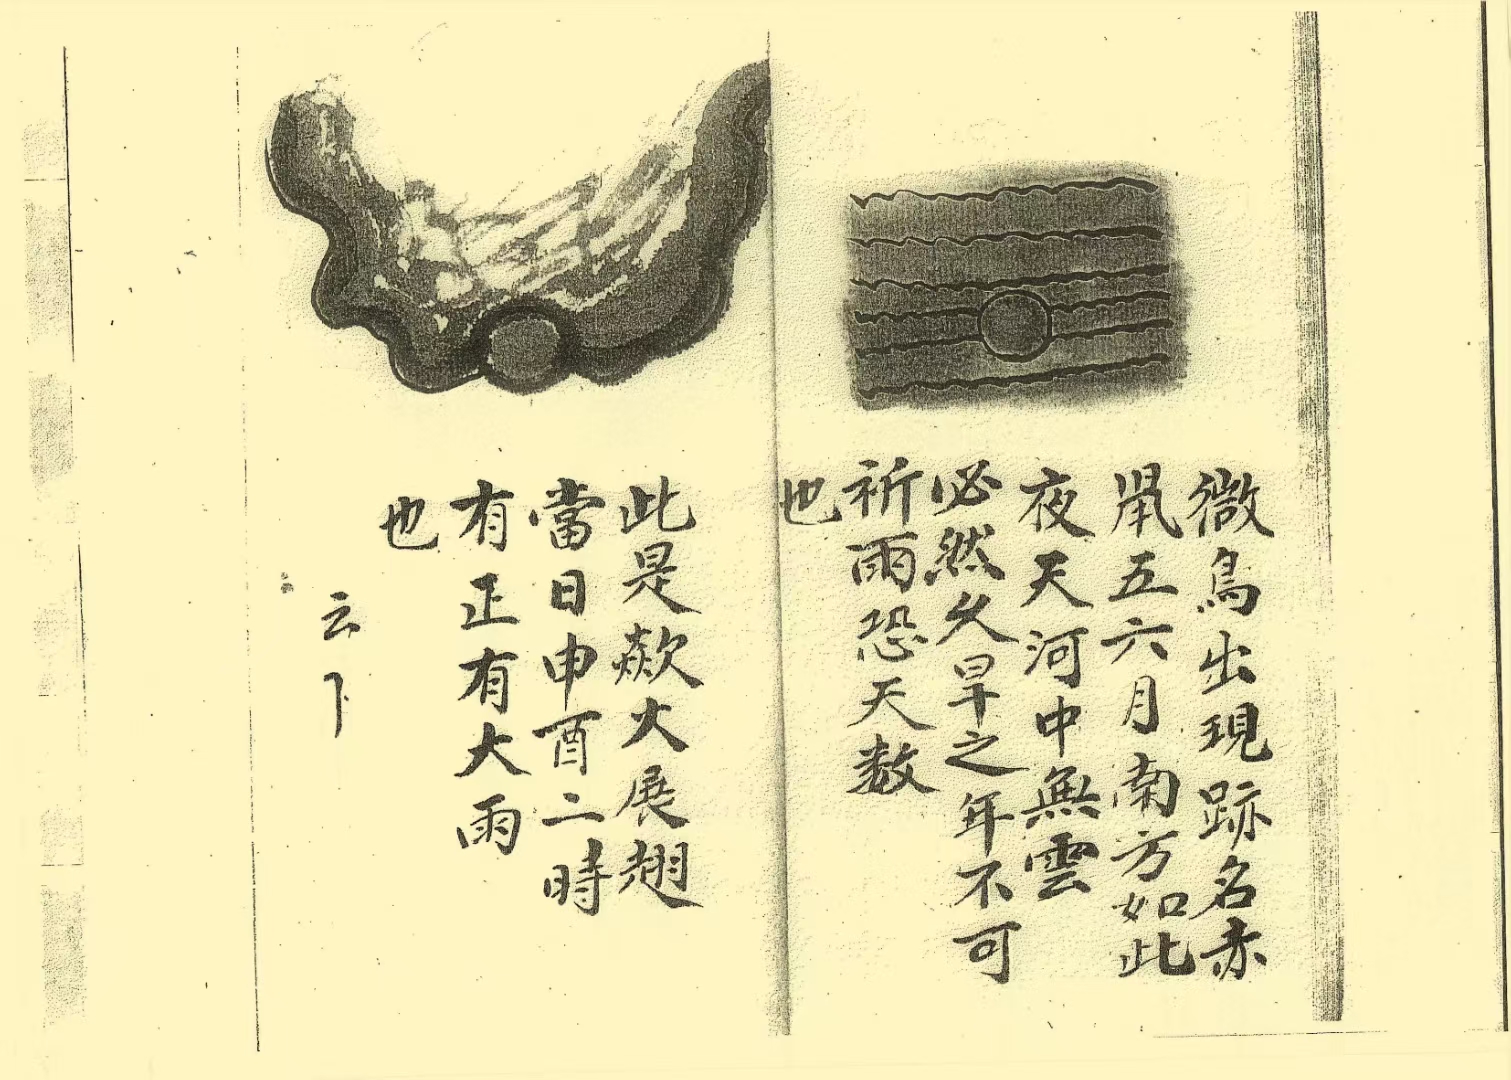 微鳥出現跡名赤
鼡五六月南方如此
夜天河中無雲
必然久旱之年不可
祈雨恐天数
也
此是歘火展翅
當日申酉二時
有正有大雨
也
云下